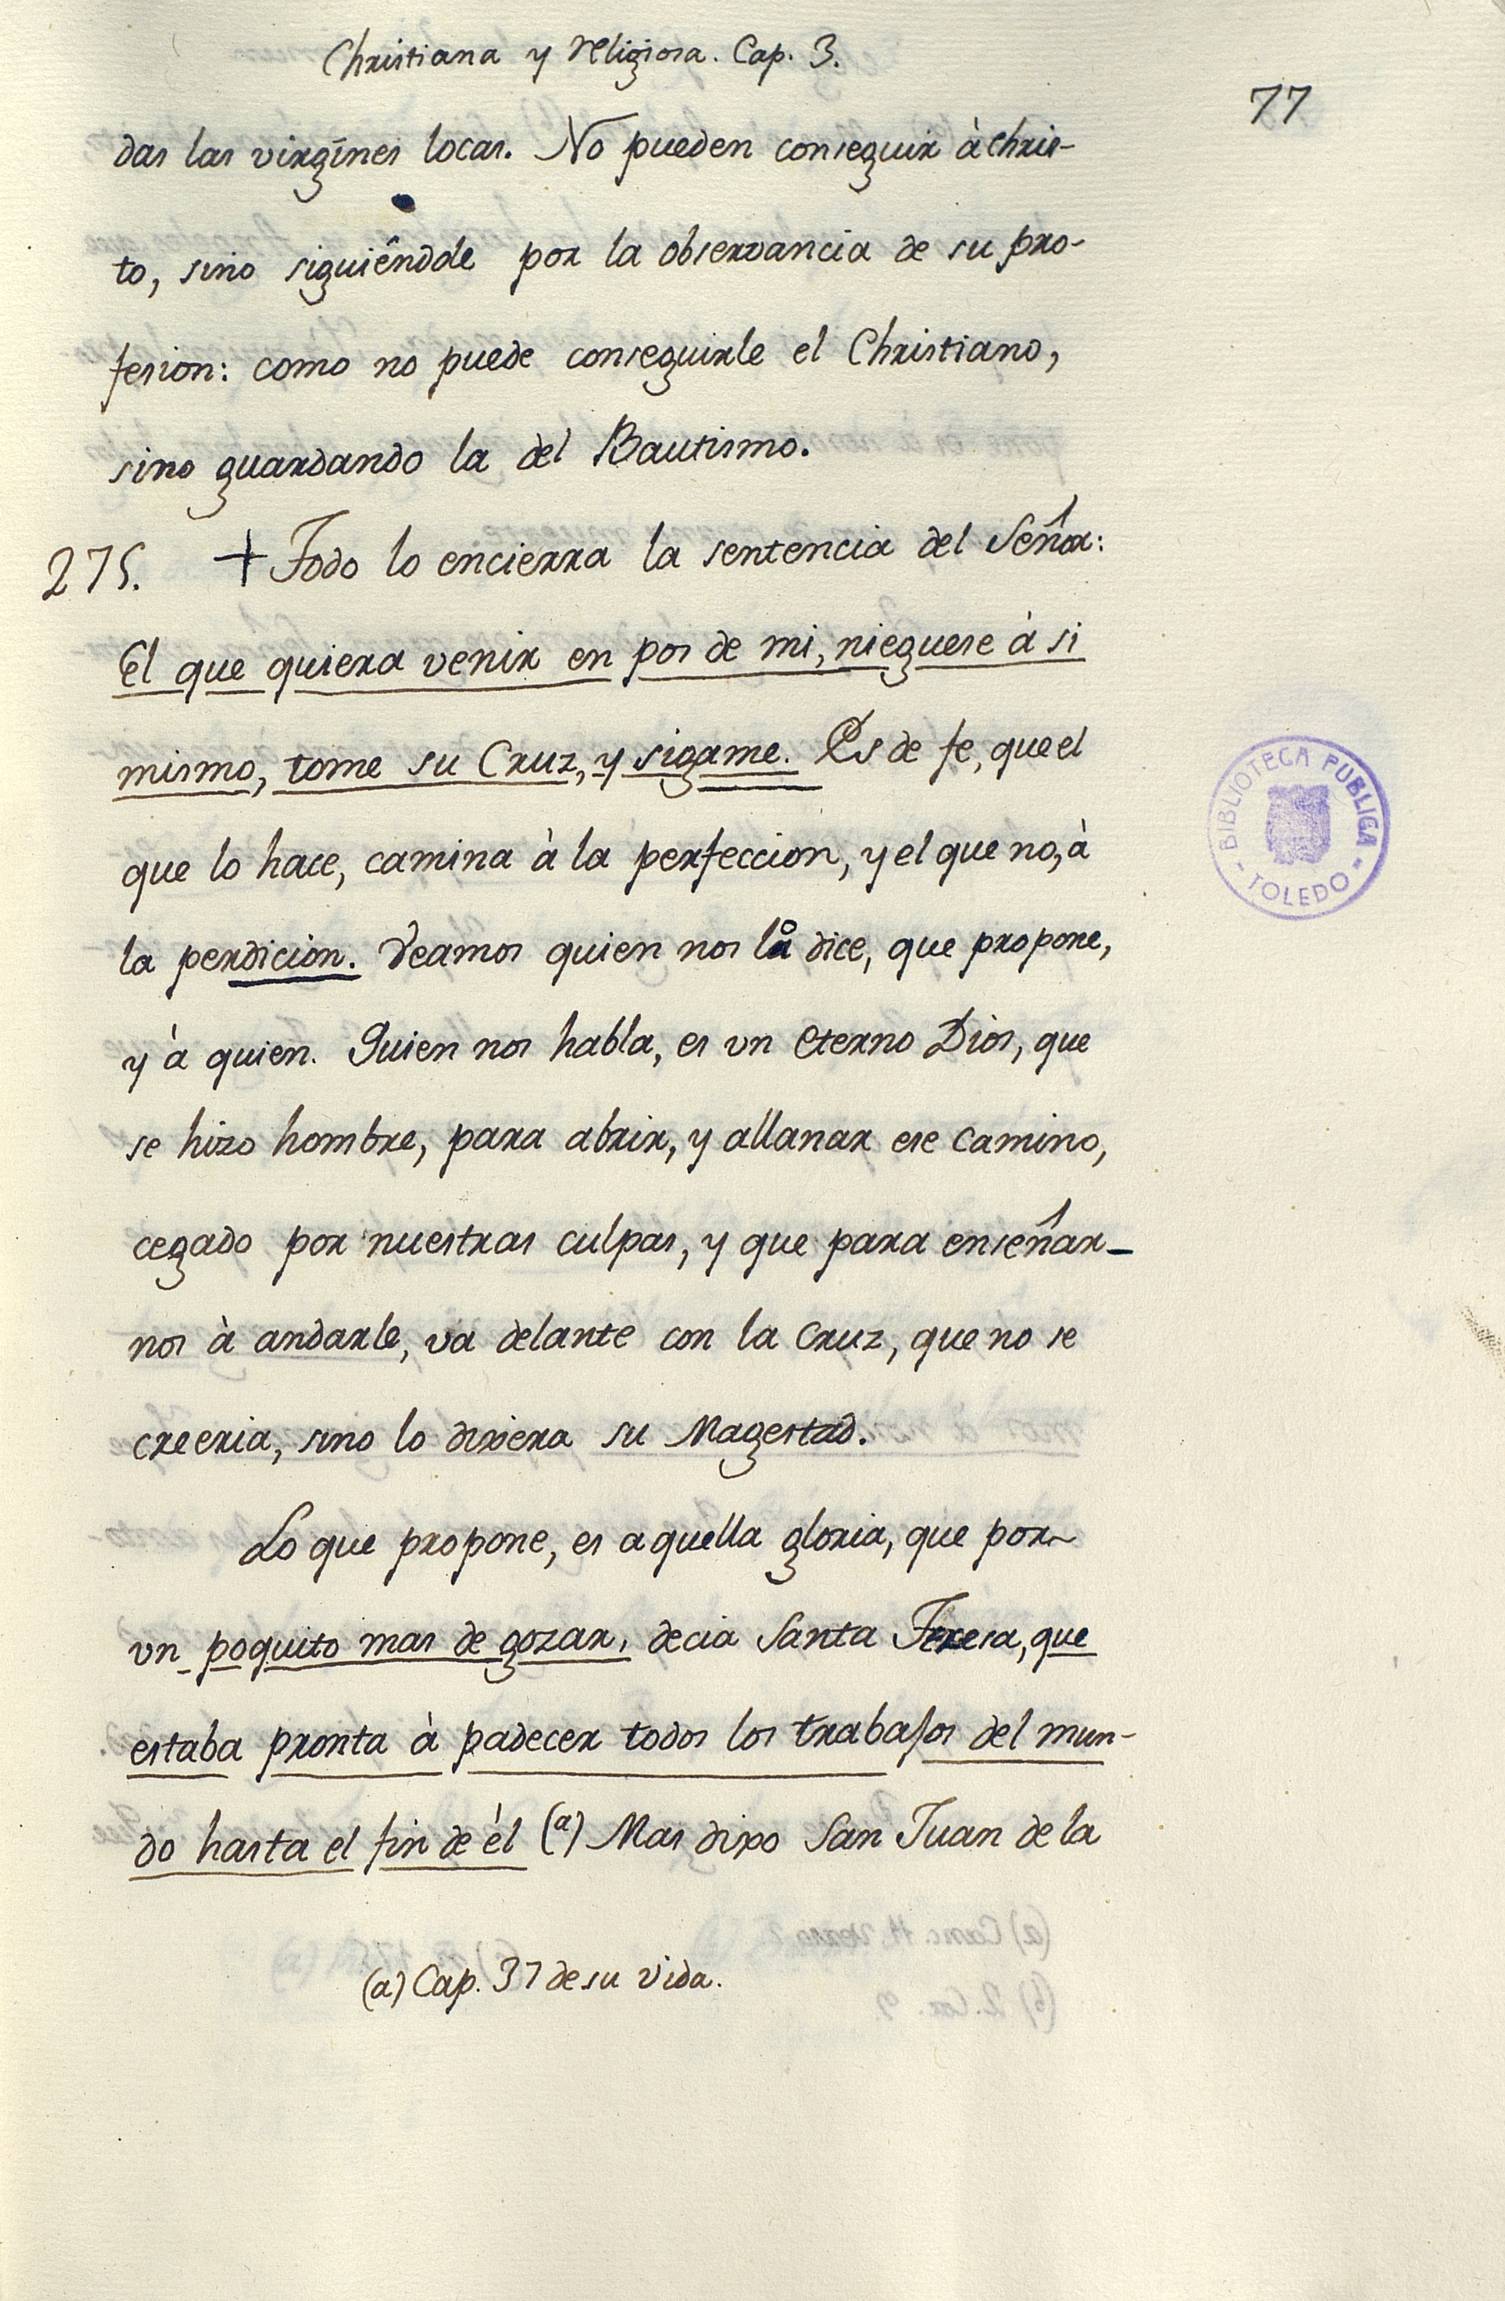 Christiana y religiosa. Cap. 3.
77
das las virgines locas. No pueden conseguir à Chris-
to, sino siguiêndole por la observancia de su pro-
fesion: como no puede conseguirle el Christiano,
sino guardando la del Bautismo.
275. + Todo lo encierra la sentencia del Señor:
El que quiera venir en pos de mi, nieguese à si
mismo, tome su Cruz, y sigame. Es de fe, que el
que lo hace, camina à la perfeccion, y el que no, à
la perdicion. Veamos quien nos lo dice, que propone,
y à quien. Quien nos habla, es un Eterno Dios, que
se hizo hombre, para abrir, y allanar ese camino,
cegado por nuestras culpas, y que para enseñar-
nos à andarle, va delante con la Cruz, que no se
creeria, sino lo dixera su Magestad.
Lo que propone, es aquella gloria, que por
un poquito mas de gozar, decia Santa Teresa, que
estaba pronta à padecer todos los trabajos del mun-
do hasta el fin de él (a) Mas dixo San Juan de la
(a) Cap. 37 de su Vida.
BIBLIOTECA PUBLICA
- TOLEDO -